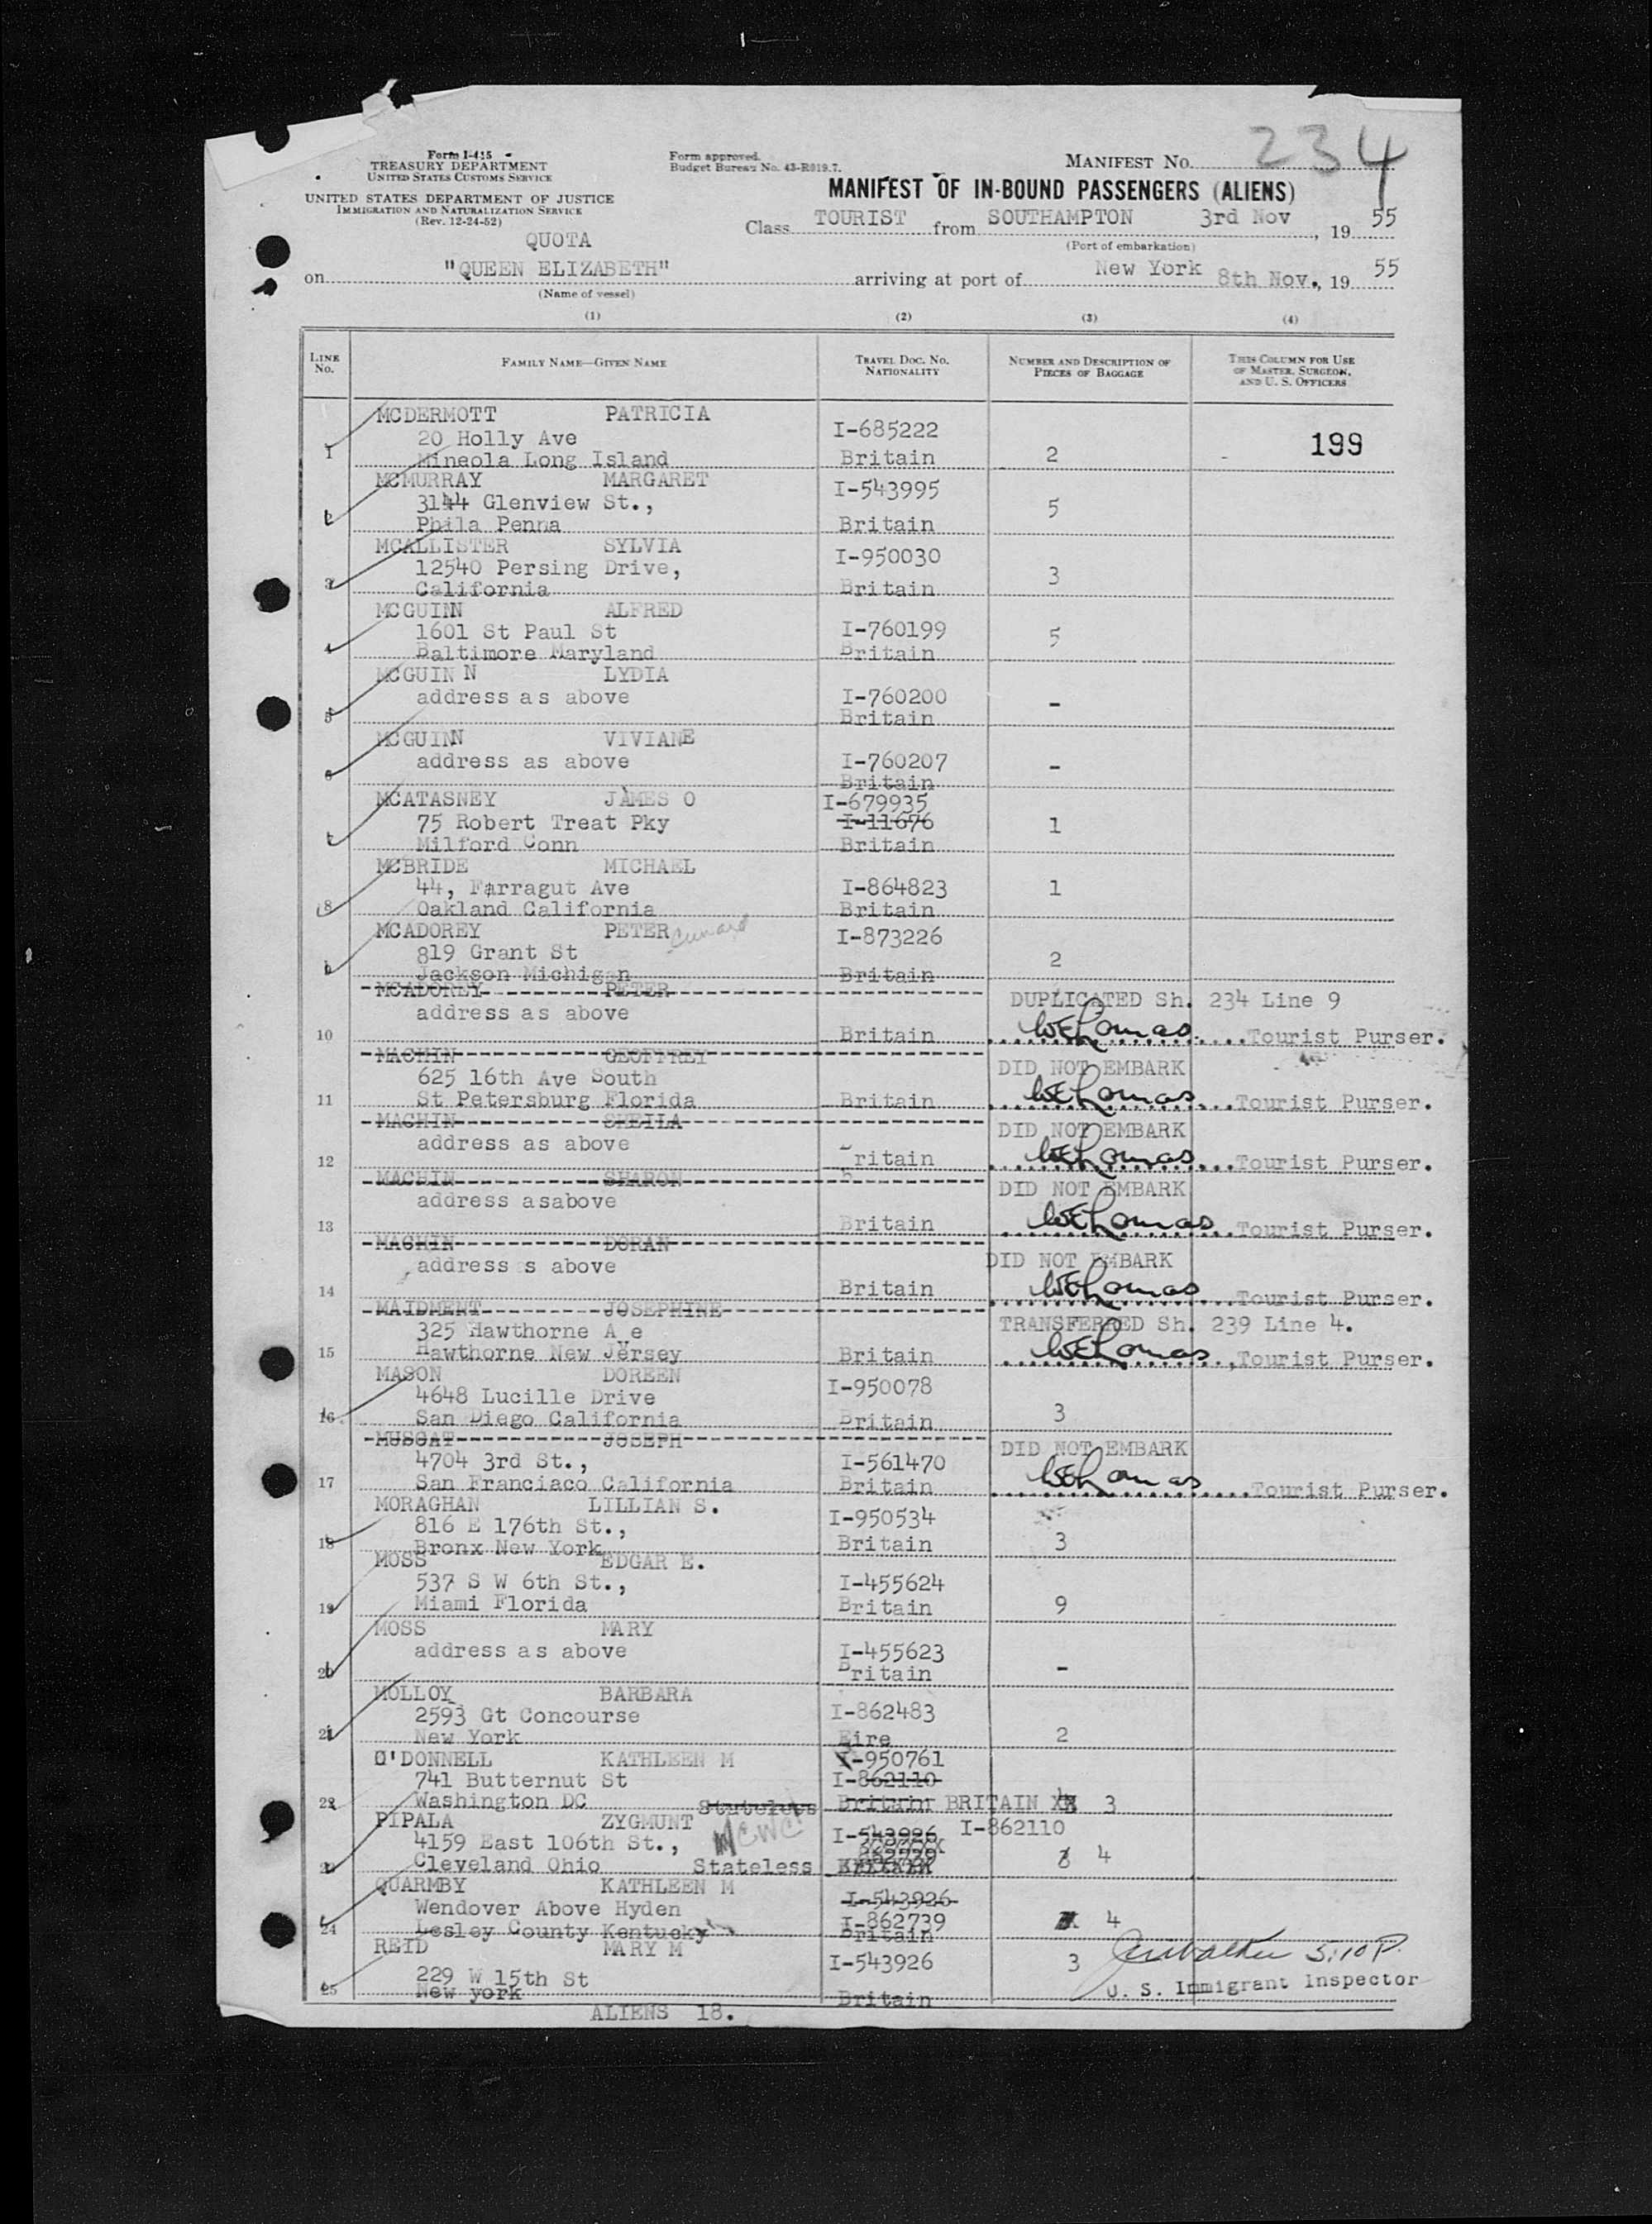 Form I-415
TREASURY DEPARTMENT
UNITED STATES CUSTOMS SERVICE
UNITED STATES DEPARTMENT OF JUSTICE
IMMIGRATION AND NATURALIZATION SERVICE
(Rev. 12-24-52)
Form approved.
Budget Bureau No. 43-R019.7.
MANIFEST No. 234
MANIFEST OF IN-BOUND PASSENGERS (ALIENS)
QUOTA
Class TOURIST from SOUTHAMPTON 3rd Nov, 19 55
(Port of embarkation)
on "QUEEN ELIZABETH" arriving at port of New York 8th Nov., 19 55
(Name of vessel)
(1) (2) (3) (4)
LINE No. FAMILY NAME—GIVEN NAME TRAVEL DOC. No. NATIONALITY NUMBER AND DESCRIPTION OF PIECES OF BAGGAGE THIS COLUMN FOR USE OF MASTER, SURGEON, AND U. S. OFFICERS
MCDERMOTT PATRICIA
20 Holly Ave I-685222
1 Mineola Long Island Britain 2 199
MCMURRAY MARGARET I-543995
3144 Glenview St., 5
2 Phila Penna Britain
MCALLISTER SYLVIA I-950030
12540 Persing Drive, 3
3 California Britain
MCGUINN ALFRED
1601 St Paul St I-760199 5
4 Baltimore Maryland Britain
MCGUIN N LYDIA
address as above I-760200 -
5 Britain
MCGUINN VIVIANE
address as above I-760207 -
6 Britain
MCATASNEY JAMES O I-679935
75 Robert Treat Pky I-11676 1
7 Milford Conn Britain
MCBRIDE MICHAEL
44, Farragut Ave I-864823 1
8 Oakland California Britain
MCADOREY PETER Cunard I-873226
819 Grant St 2
9 Jackson Michigan Britain
MCADOREY PETER DUPLICATED Sh. 234 Line 9
address as above
10 Britain WEThomas Tourist Purser.
MACHIN GEOFFREY DID NOT EMBARK
625 16th Ave South
11 St Petersburg Florida Britain WEThomas Tourist Purser.
MACHIN SHEILA DID NOT EMBARK
address as above
12 Britain WEThomas Tourist Purser.
MACHIN SHARON DID NOT EMBARK
address asabove
13 Britain WEThomas Tourist Purser.
MACHIN DORAN DID NOT EMBARK
address s above
14 Britain WEThomas Tourist Purser.
MAIDMENT JOSEPHINE TRANSFERRED Sh. 239 Line 4.
325 Hawthorne A e
15 Hawthorne New Jersey Britain WEThomas Tourist Purser.
MASON DOREEN I-950078
4648 Lucille Drive
16 San Diego California Britain 3
MUSCAT JOSEPH DID NOT EMBARK
4704 3rd St., I-561470
17 San Franciaco California Britain WEThomas Tourist Purser.
MORAGHAN LILLIAN S. I-950534
816 E 176th St.,
18 Bronx New York Britain 3
MOSS EDGAR E.
537 S W 6th St., I-455624
19 Miami Florida Britain 9
MOSS MARY
address as above I-455623
20 Britain -
MOLLOY BARBARA
2593 Gt Concourse I-862483
21 New York Eire 2
O'DONNELL KATHLEEN M I-950761
741 Butternut St I-862110
22 Washington DC Stateless Britain BRITAIN 3
PIPALA ZYGMUNT I-543926 I-862110
4159 East 106th St., 862739
23 Cleveland Ohio Stateless 4
QUARMBY KATHLEEN M I-543926
Wendover Above Hyden I-862739 4
24 Lesley County Kentucky Britain
REID MARY M I-543926 3 5:10 P.
229 W 15th St U. S. Immigrant Inspector
25 New york Britain
ALIENS 18.